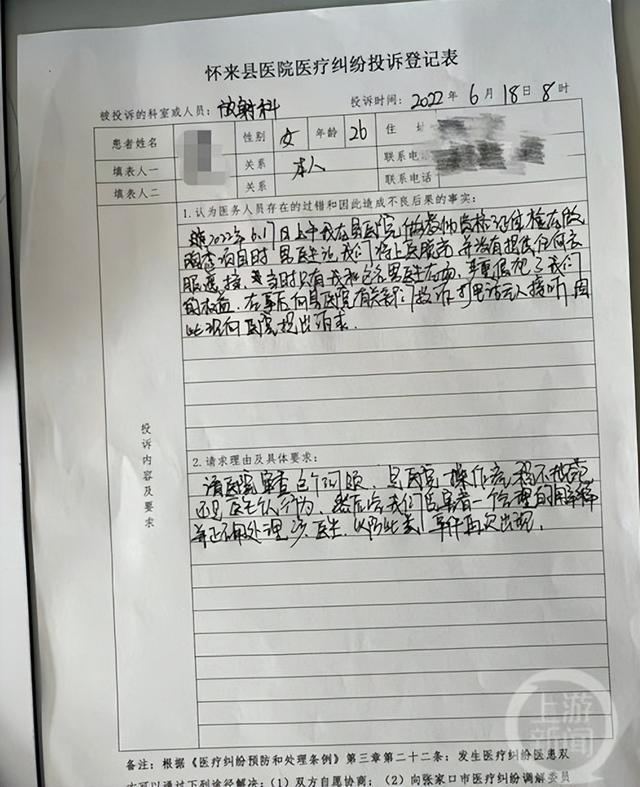 怀来县医院医疗纠纷投诉登记表
被投诉的科室或人员：放射科 投诉时间：2022年6月18日8时
患者姓名 性别 女 年龄 26 住 址
填表人一 关系 本人 联系电话
填表人二 关系 联系电话
1.认为医务人员存在的过错和因此造成不良后果的事实：
2022年6.17日上午我在县医院做教师资格证体检在做
胸透项目时男医生让我们将上衣脱光并没有提供任何衣
服遮挡，当时只有我和这名男医生在场，严重侵犯了我们
的权益。在事后向县医院有关部门投诉打电话无人接听，因
此现向医院提出诉求。
投诉内容及要求
2.请求理由及具体要求：
请医院审查这个问题，是医院操作流程不规范
还是医生个人行为，然后给我们患者一个合理的解释
并正确处理涉 医生，以防此类事件再次出现。
备注：根据《医疗纠纷预防和处理条例》第三章第二十二条：发生医疗纠纷医患双
方可以通过下列途径解决：（1）双方自愿协商；（2）向张家口市医疗纠纷调解委员
上游新闻